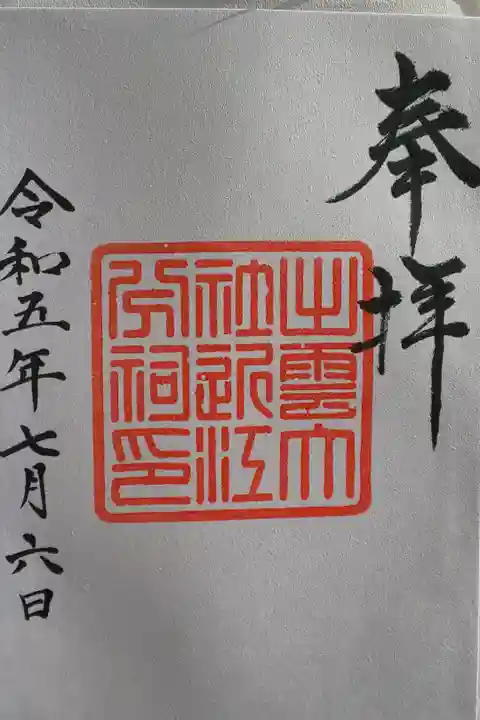 奉拝
出雲大
社近江
分祠印
令和五年七月六日